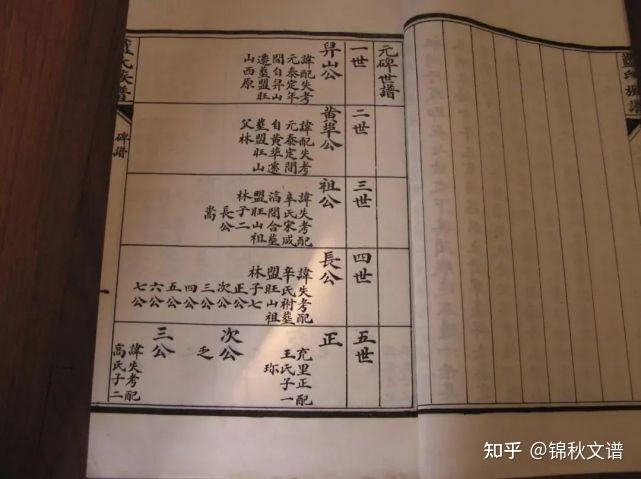 元碑世譜
一世
昇山公
諱配失考
元泰定年
間自昇山
遷墓盟旺
山西原
二世
黄埠公
諱配失考
元泰定間
自黄埠遷
墓盟旺山
父林
三世
祖公
諱失考配
辛氏宋咸
間合墓
盟旺山祖
林子二
長公
嵩
四世
長公
諱失考配
辛氏祔墓
盟旺山祖
林子七
正公
次公
三公
四公
五公
六公
七公
五世
正
充里正配
王氏子一
珎
次公
乏
三公
諱失考配
高氏子二
氏族譜
碑譜
知乎 @锦秋文谱